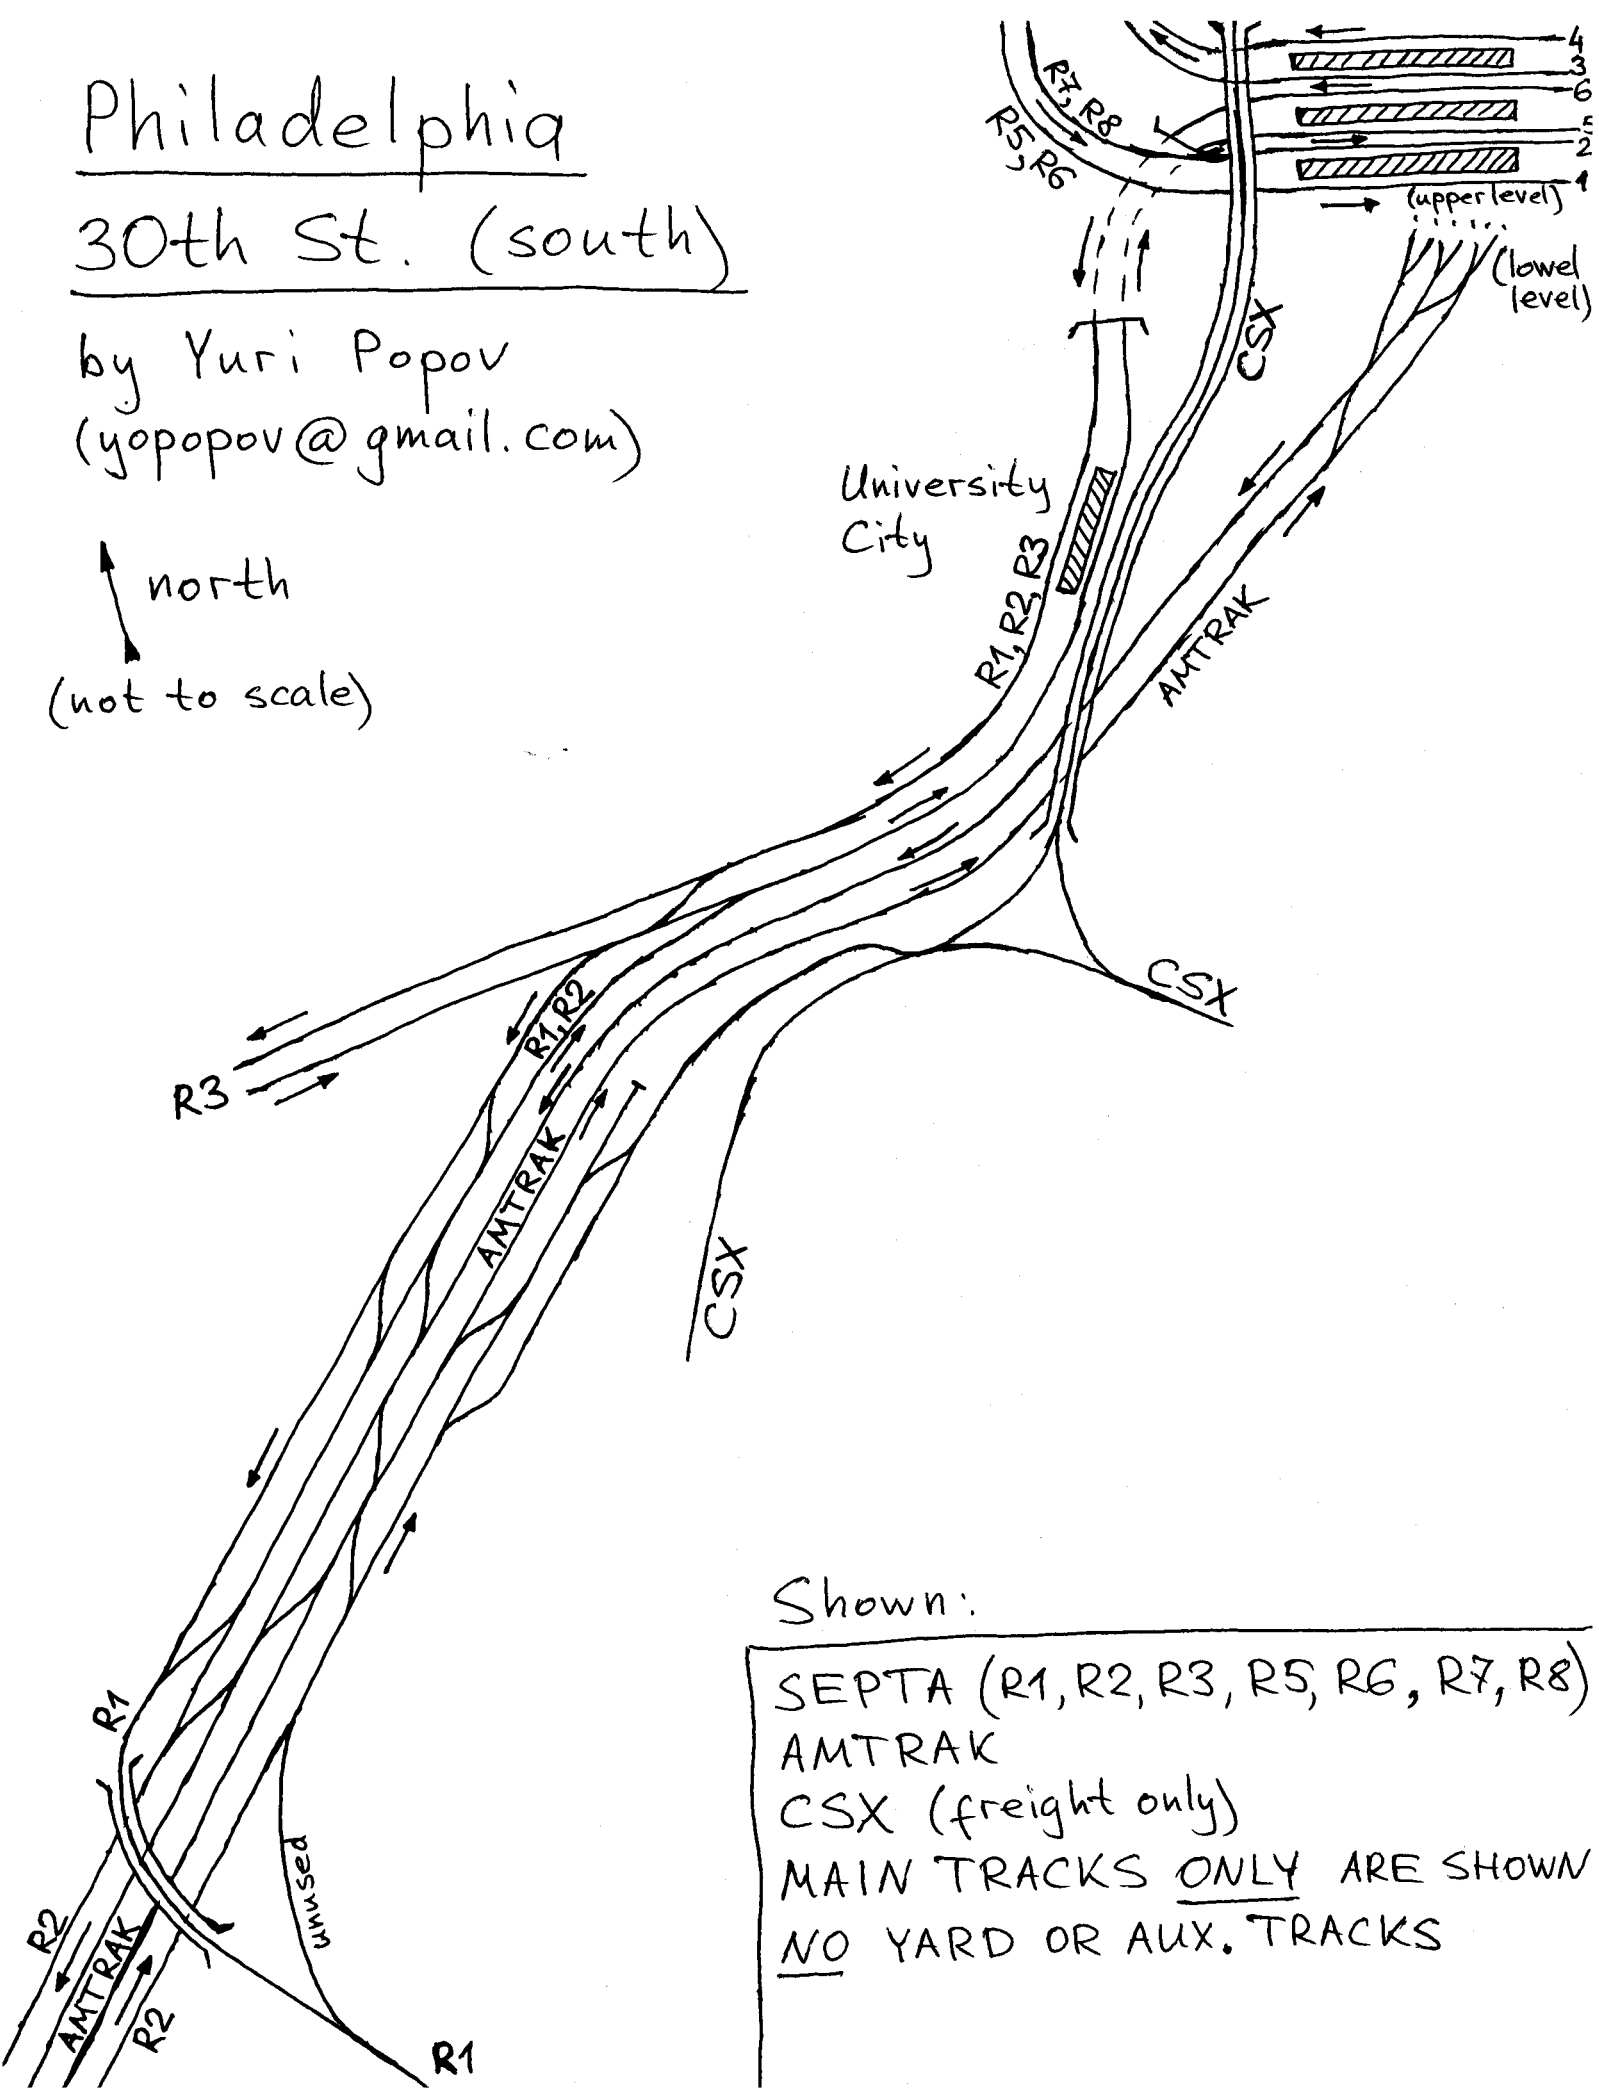 Philadelphia
30th St. (south)
by Yuri Popov
(yopopov@gmail.com)
north
(not to scale)
R7, R8
R5, R6
4
3
6
5
2
1
(upper level)
(lowel
level)
CSX
University
City
R1, R2, R3
AMTRAK
CSX
R1, R2
R3
AMTRAK
CSX
Shown:
SEPTA (R1, R2, R3, R5, R6, R7, R8)
AMTRAK
CSX (freight only)
MAIN TRACKS ONLY ARE SHOWN
NO YARD OR AUX. TRACKS
R1
unused
R2
AMTRAK
R2
R1